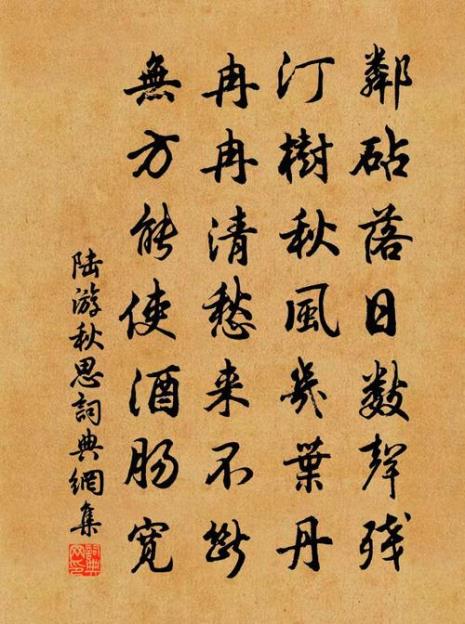 鄰砧落日數聲残
汀樹秋風幾葉丹
冉冉清愁来不斷
無方能使酒腸寬
陆游秋思詞典網集